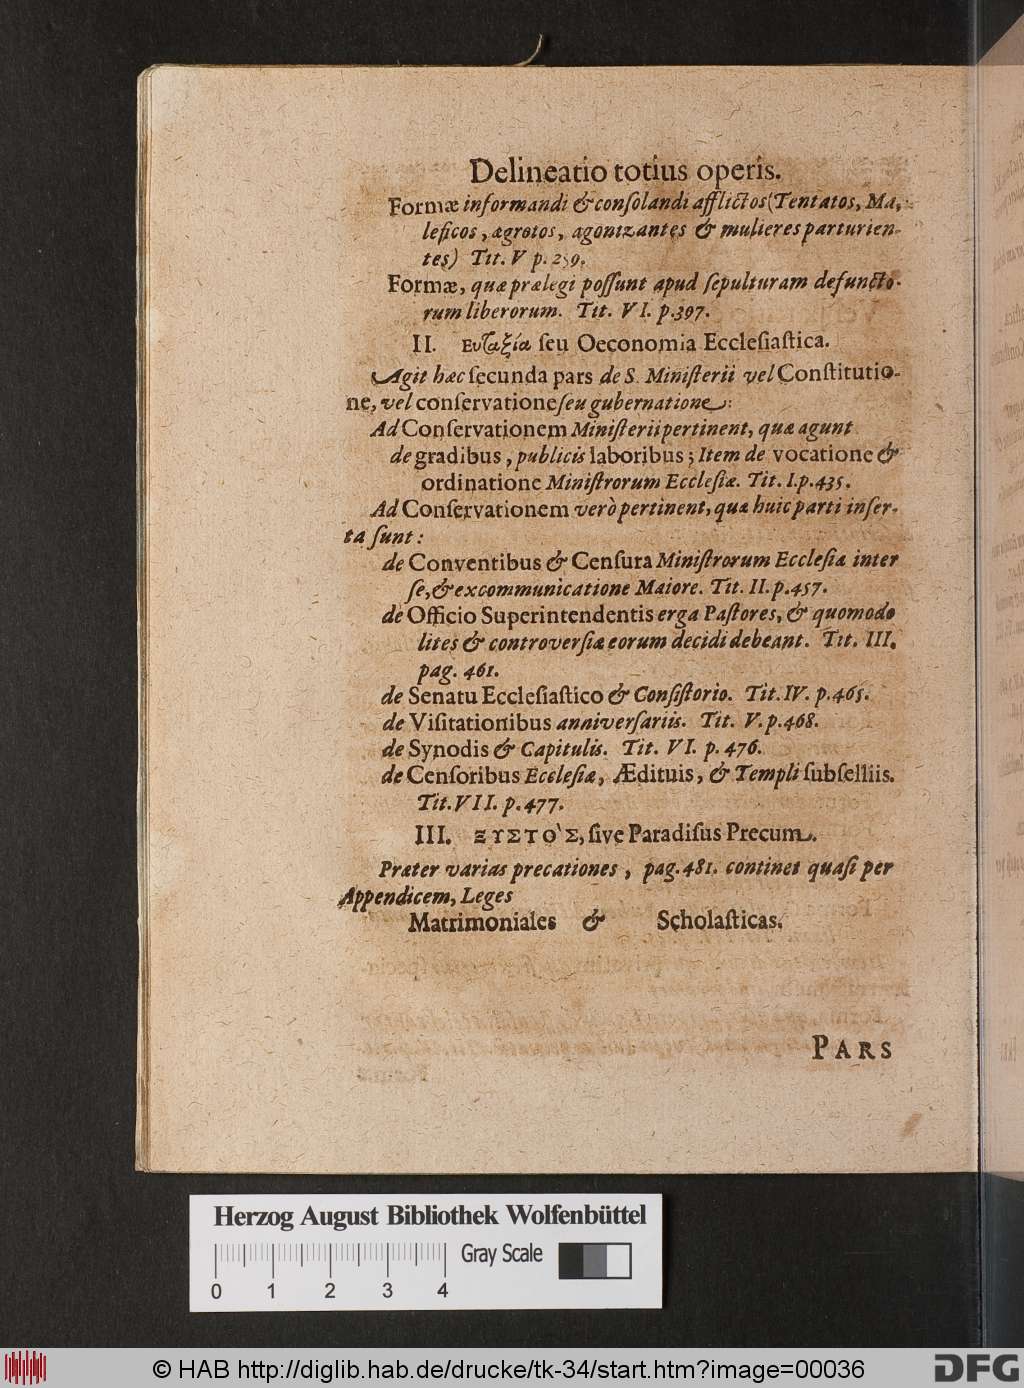 Delineatio totius operis.
Formæ informandi & conſolandi afflictos (Tentatos, Ma-
leficos, ægrotos, agonizantes & mulieres parturien-
tes) Tit. V p. 259.
Formæ, quæ prælegi poſſunt apud ſepulturam defuncto-
rum liberorum. Tit. VI. p. 397.
II. Ευταξία ſeu Oeconomia Eccleſiaſtica.
Agit hæc ſecunda pars de S. Miniſterii vel Conſtitutio-
ne, vel conſervatione ſeu gubernatione:
Ad Conſervationem Miniſterii pertinent, quæ agunt
de gradibus, publicis laboribus; Item de vocatione &
ordinatione Miniſtrorum Eccleſiæ. Tit. I. p. 435.
Ad Conſervationem verò pertinent, quæ huic parti inſer-
ta ſunt:
de Conventibus & Cenſura Miniſtrorum Eccleſiæ inter
ſe, & excommunicatione Maiore. Tit. II. p. 457.
de Officio Superintendentis erga Paſtores, & quomodo
lites & controverſiæ eorum decidi debeant. Tit. III.
pag. 461.
de Senatu Eccleſiaſtico & Conſiſtorio. Tit. IV. p. 465.
de Viſitationibus anniverſariis. Tit. V. p. 468.
de Synodis & Capitulis. Tit. VI. p. 476.
de Cenſoribus Eccleſiæ, Ædituis, & Templi ſubſelliis.
Tit. VII. p. 477.
III. ΞΥΣΤΟ`Σ, ſive Paradiſus Precum.
Præter varias precationes, pag. 481. continet quaſi per
Appendicem, Leges
Matrimoniales & Scholaſticas.
PARS
Herzog August Bibliothek Wolfenbüttel
Gray Scale
0 1 2 3 4
© HAB http://diglib.hab.de/drucke/tk-34/start.htm?image=00036
DFG